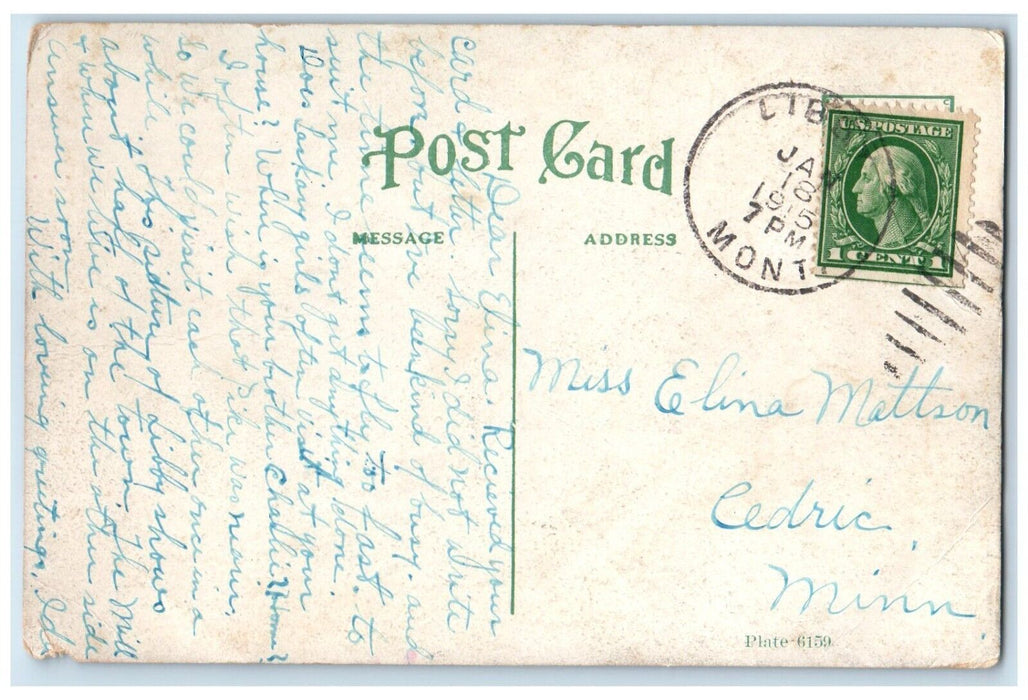 POST CARD
MESSAGE
ADDRESS
LIBBY
JAN
18
1915
7 PM
MONT
U.S. POSTAGE
1 CENT 1
Miss Elina Mattson
Cedric,
Minn.
Plate 6159
Dear Elina. Recieved your
card & letter. Sorry I did not write
before but I've been kind of busy. and
the time seems to fly too fast to
suit me. I don't get anything done.
Does girls often visit at your
home? When is your brother Charlie Home?
I often wish that Pike was near,
so we could visit each other once in a
while. This picture of Libby shows
about half of the town. The Mill
& where we live is on the other side
answer soon.
With loving greetings, Ida